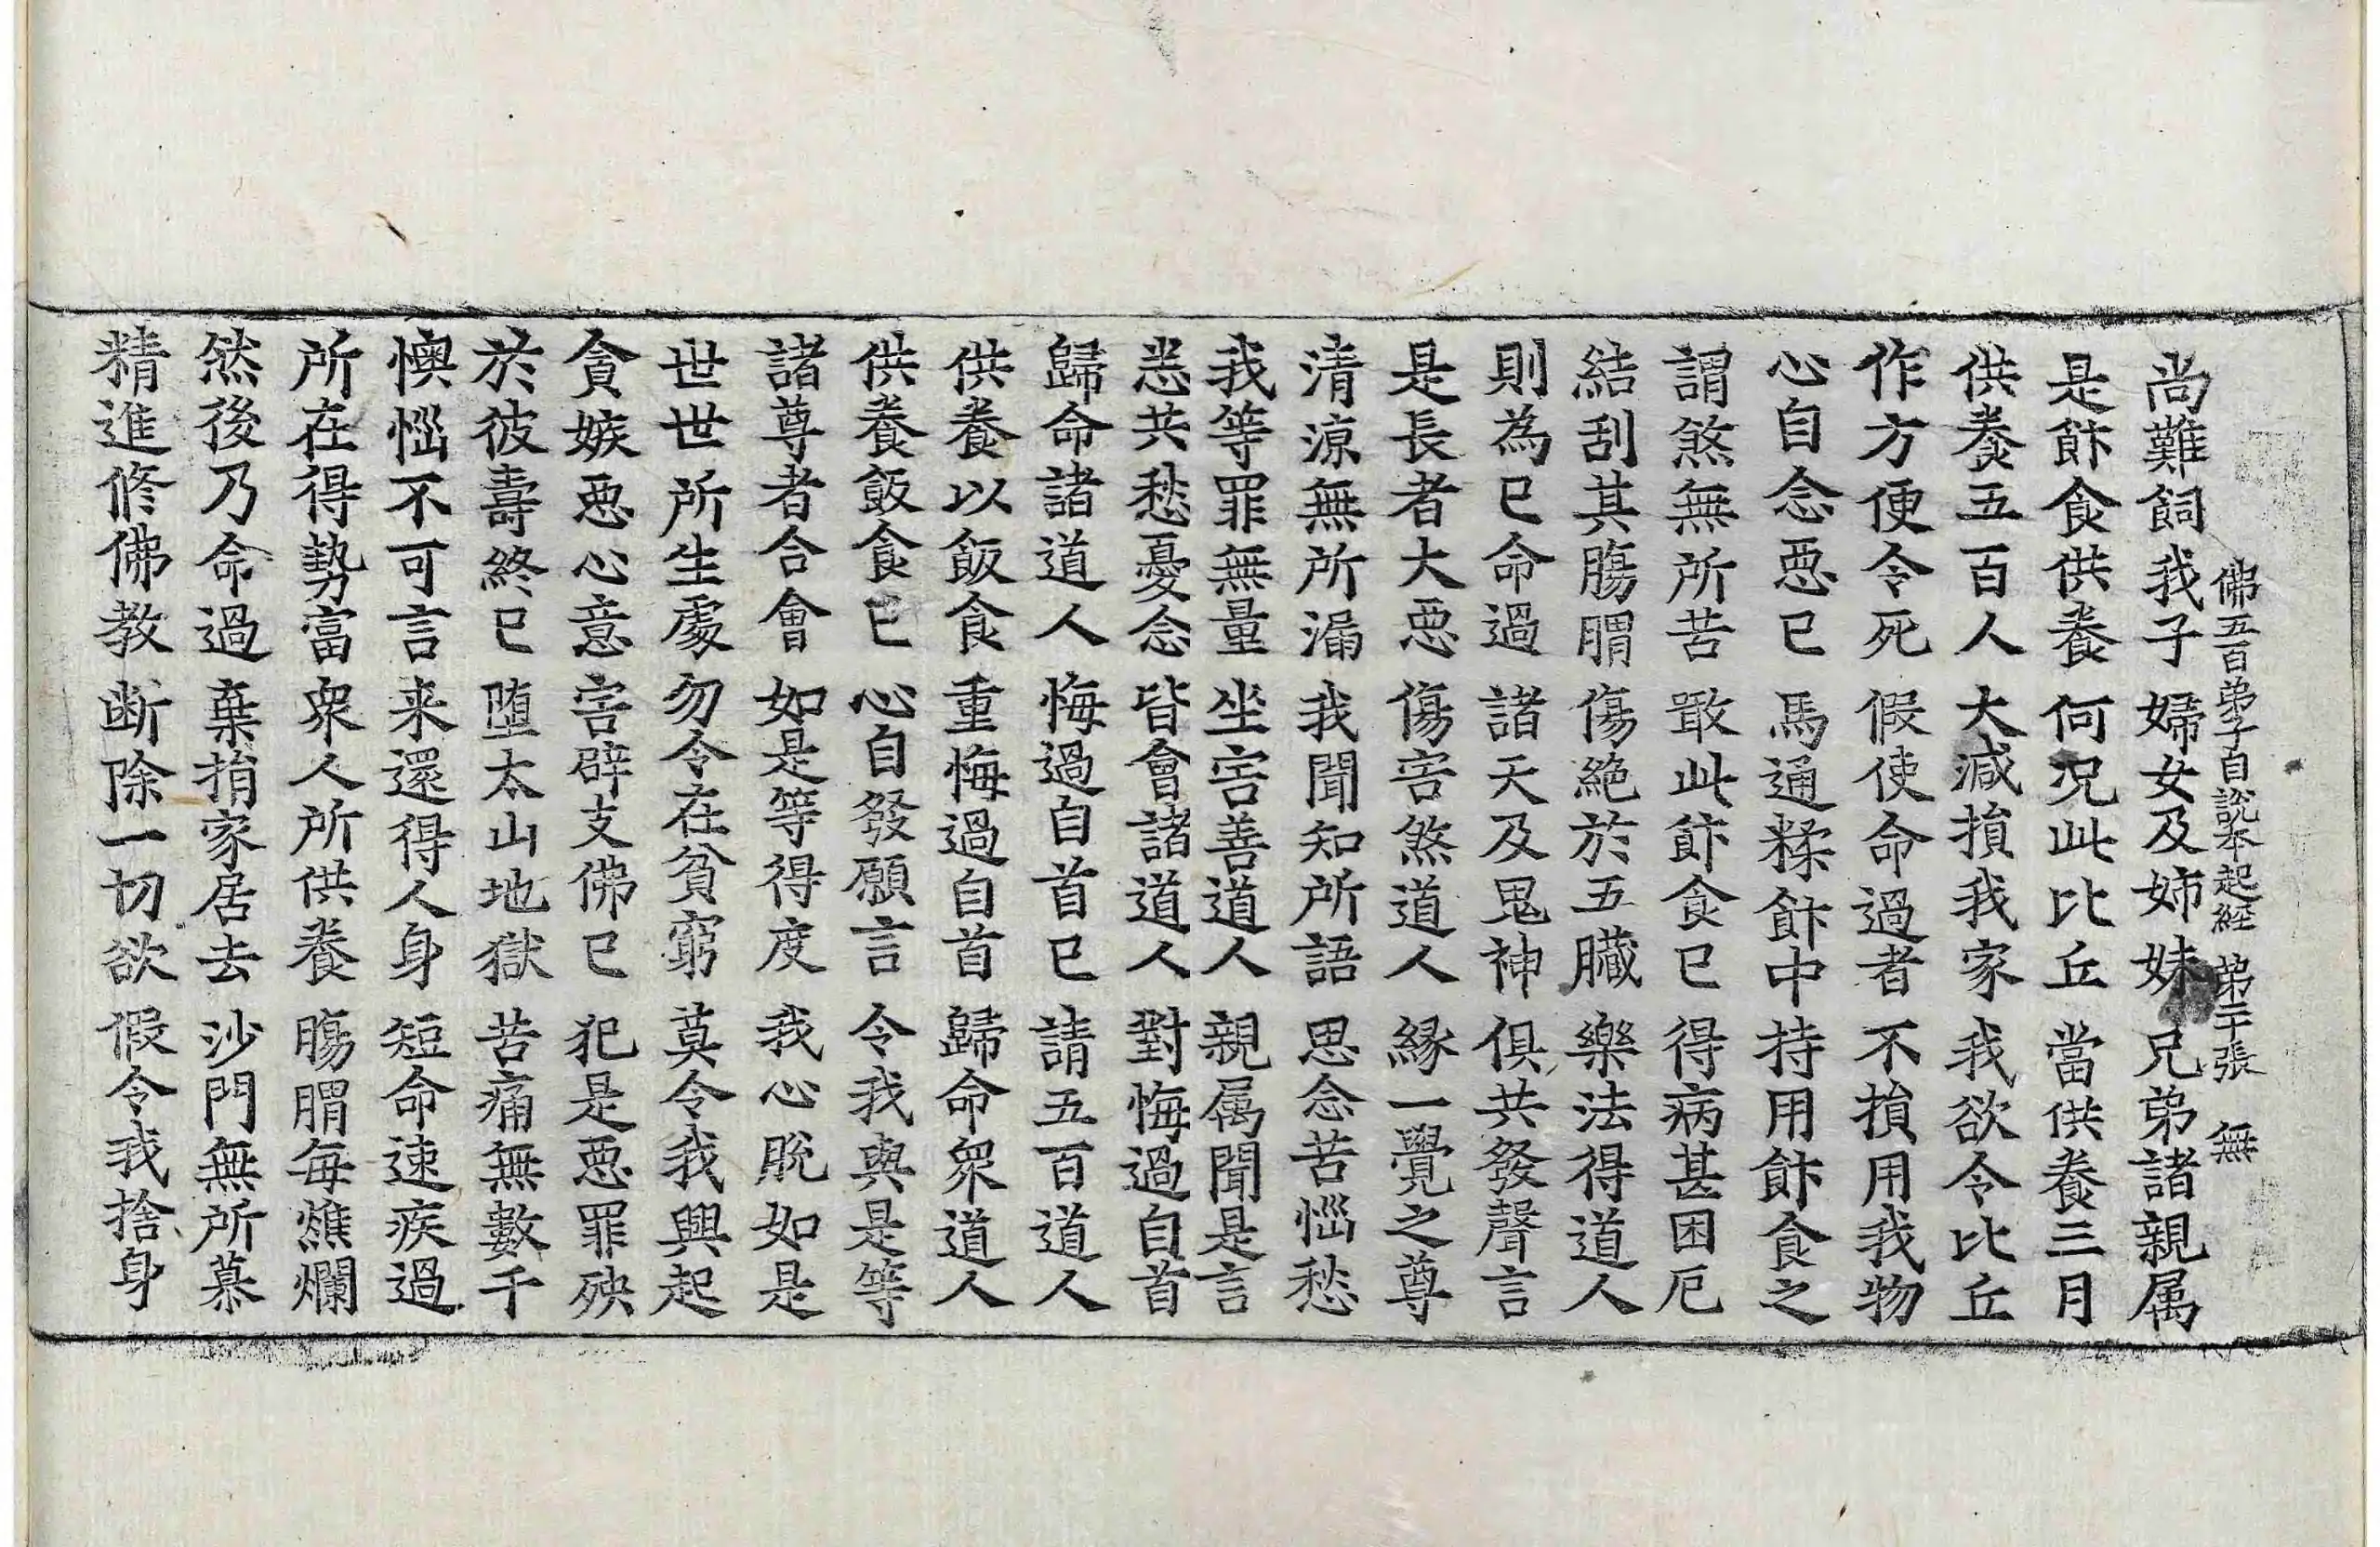 佛五百弟子自說本起經 第二十張 無
尚難飼我子 婦女及姉妹 兄弟諸親属
是飰食供養 何况此比丘 當供養三月
供養五百人 大減損我家 我欲令比丘
作方便令死 假使命過者 不損用我物
心自念惡已 馬通糅飰中 持用飰食之
謂煞無所苦 噉此飰食已 得病甚困厄
結刮其膓胃 傷絶於五臓 樂法得道人
則為已命過 諸天及鬼神 俱共發聲言
是長者大惡 傷害煞道人 縁一覺之尊
清涼無所漏 我聞知所語 思念苦惱愁
我等罪無量 坐害善道人 親属聞是言
恙共愁憂念 皆會諸道人 對悔過自首
歸命諸道人 悔過自首已 請五百道人
供養以飯食 重悔過自首 歸命衆道人
供養飯食已 心自發願言 令我與是等
諸尊者合會 如是等得度 我心脫如是
世世所生處 勿令在貧窮 莫令我興起
貪嫉惡心意 害辟支佛已 犯是惡罪殃
於彼壽終已 堕太山地獄 苦痛無數千
懊惱不可言 来還得人身 短命速疾過
所在得勢富 衆人所供養 膓胃每燋爛
然後乃命過 棄捐家居去 沙門無所慕
精進修佛教 断除一切欲 假令我捨身